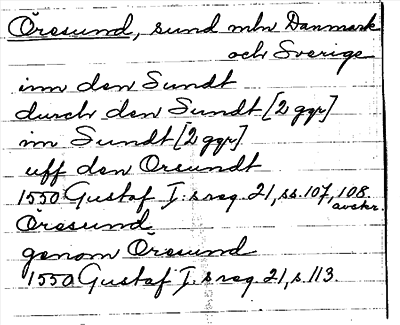 Öresund, sund mln Danmark
och Sverige
inn den Sundt
durch den Sundt [2 ggr]
im Sundt [2 ggr]
uff den Oresundt
1550 Gustaf I:s reg. 21, ss. 107, 108.
avskr.
Öresund
genom Öresund
1550 Gustaf I:s reg 21, s. 113.